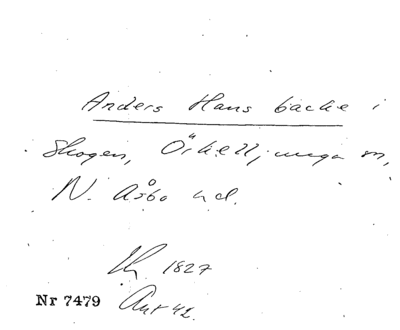 Anders Hans backe i
Skogen, Örkelljunga sn,
N. Åsbo hd.
Lh. 1827
Nr 7479 Ant 42.